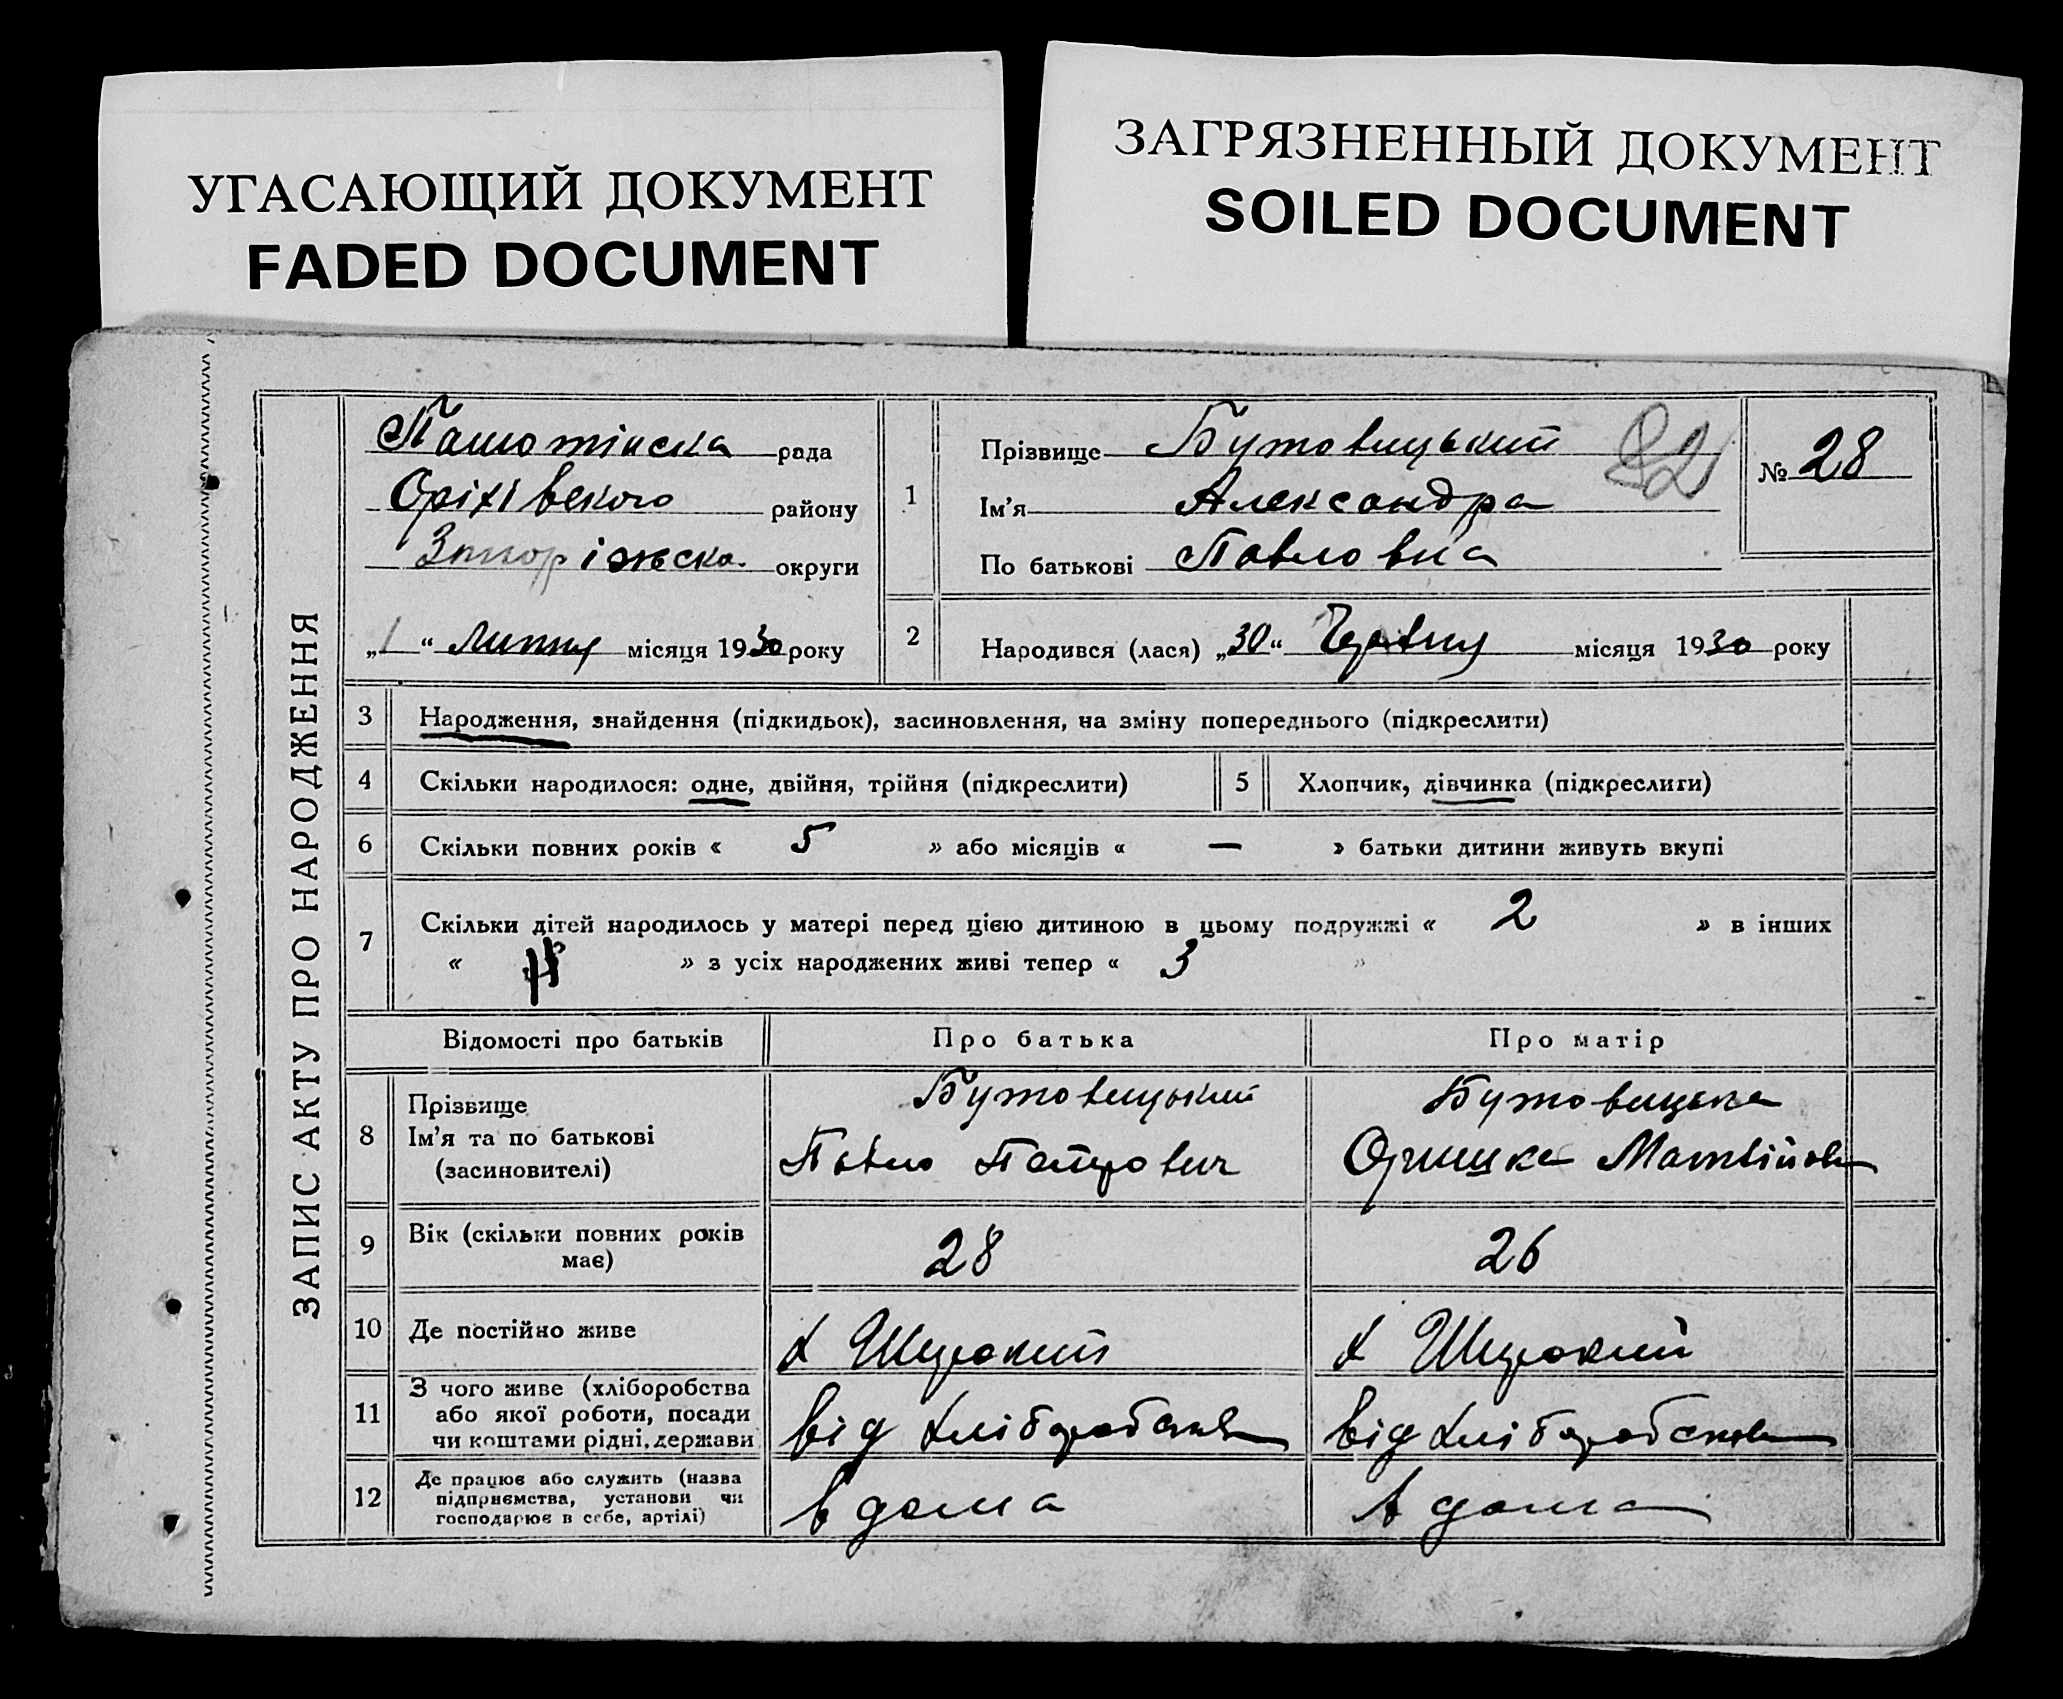 УГАСАЮЩИЙ ДОКУМЕНТ
FADED DOCUMENT
ЗАГРЯЗНЕННЫЙ ДОКУМЕНТ
SOILED DOCUMENT
ЗАПИС АКТУ ПРО НАРОДЖЕННЯ
рада
Оріхівского району
округи
„1“ Липня місяця 1930 року
1
Прізвище Бутовицький
Ім'я Александра
По батькові Павловна
82
№ 28
2 Народився (лася) „30“ Червня місяця 1930 року
3 Народження, знайдення (підкидьок), засиновлення, на зміну попереднього (підкреслити)
4 Скільки народилося: одне, двійня, трійня (підкреслити) 5 Хлопчик, дівчинка (підкреслити)
6 Скільки повних років « 5 » або місяців « — » батьки дитини живуть вкупі
7 Скільки дітей народилось у матері перед цією дитиною в цьому подружжі « 2 » в інших
« » з усіх народжених живі тепер « 3 »
Відомості про батьків Про батька Про матір
8 Прізвище Бутовицький Бутовицька
Ім'я та по батькові Павло Петрович Оришка Матвійовн
(засиновителі)
9 Вік (скільки повних років має) 28 26
10 Де постійно живе х Широкий х Широкий
11 З чого живе (хліборобства
або якої роботи, посади від хліборобства від хліборобства
чи коштами рідні, держави
12 Де працює або служить (назва
підприємства, установи чи в дома в дома
господарює в себе, артілі)